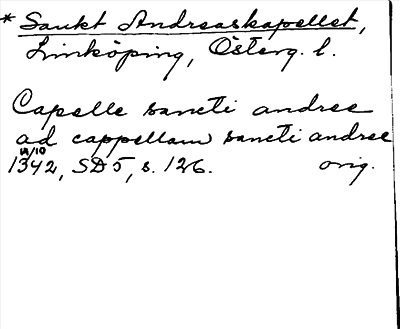 * Sankt Andreaskapellet,
Linköping, Österg. l.
Capelle sancti andree
ad cappellam sancti andree
19/10
1342, SD5, s. 126. orig.